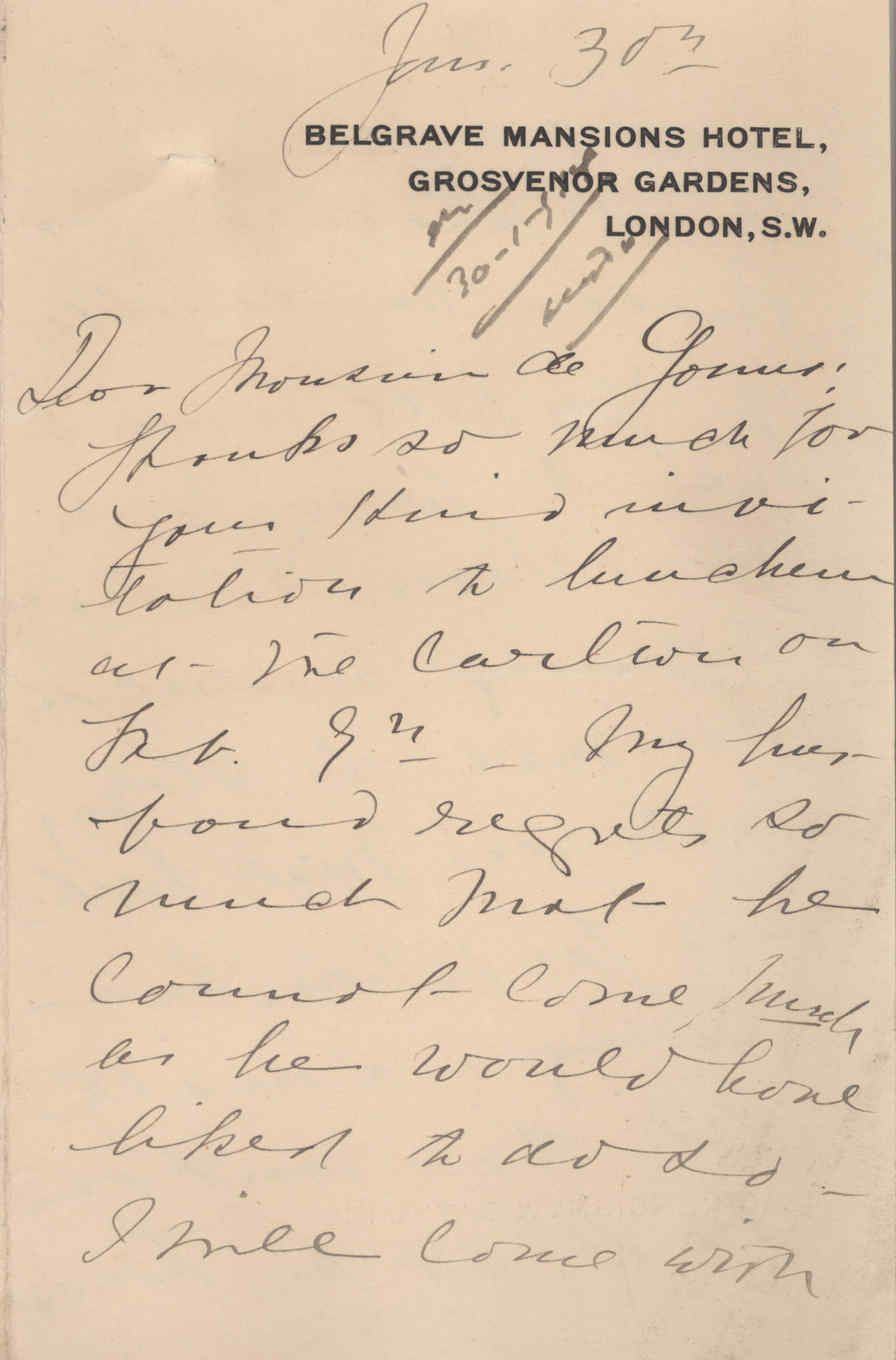 Jan. 30th
BELGRAVE MANSIONS HOTEL,
GROSVENOR GARDENS,
LONDON, S.W.
30-1-
Dear Monsieur de
thanks so much for
your kind invi-
tation to luncheon
at the Carlton on
Feb. 9th - My hus-
band regrets so
much that he
cannot come, much
as he would have
liked to do so -
I will come with